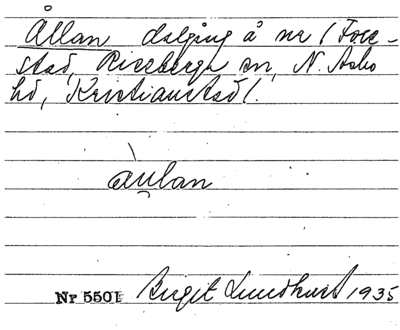 Ållan dalgång å nr 1 Fore-
stad, Riseberga sn, N. Åsbo
hd, Kristianstad l.
àu̯lan
Nr 5501 Birgit Lundkvist 1935